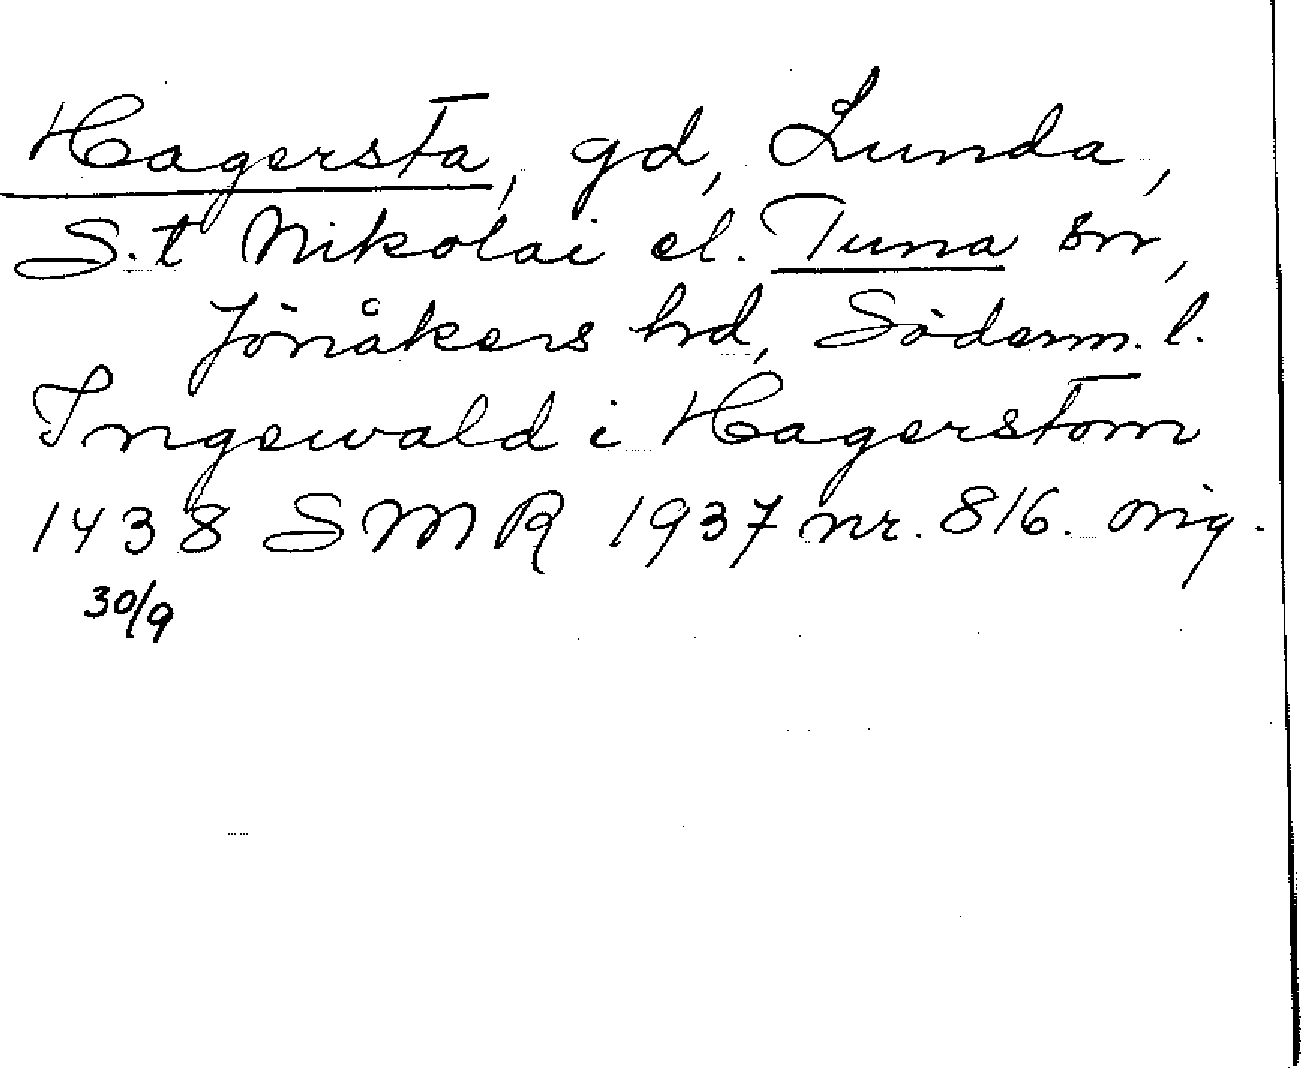 Hagersta, gd, Lunda,
S.t Nikolai el. Tuna snr,
Jönåkers hrd, Söderm. l.
Ingewald i Hagerstom
1438 SMR 1937 nr. 816. orig.
30/9